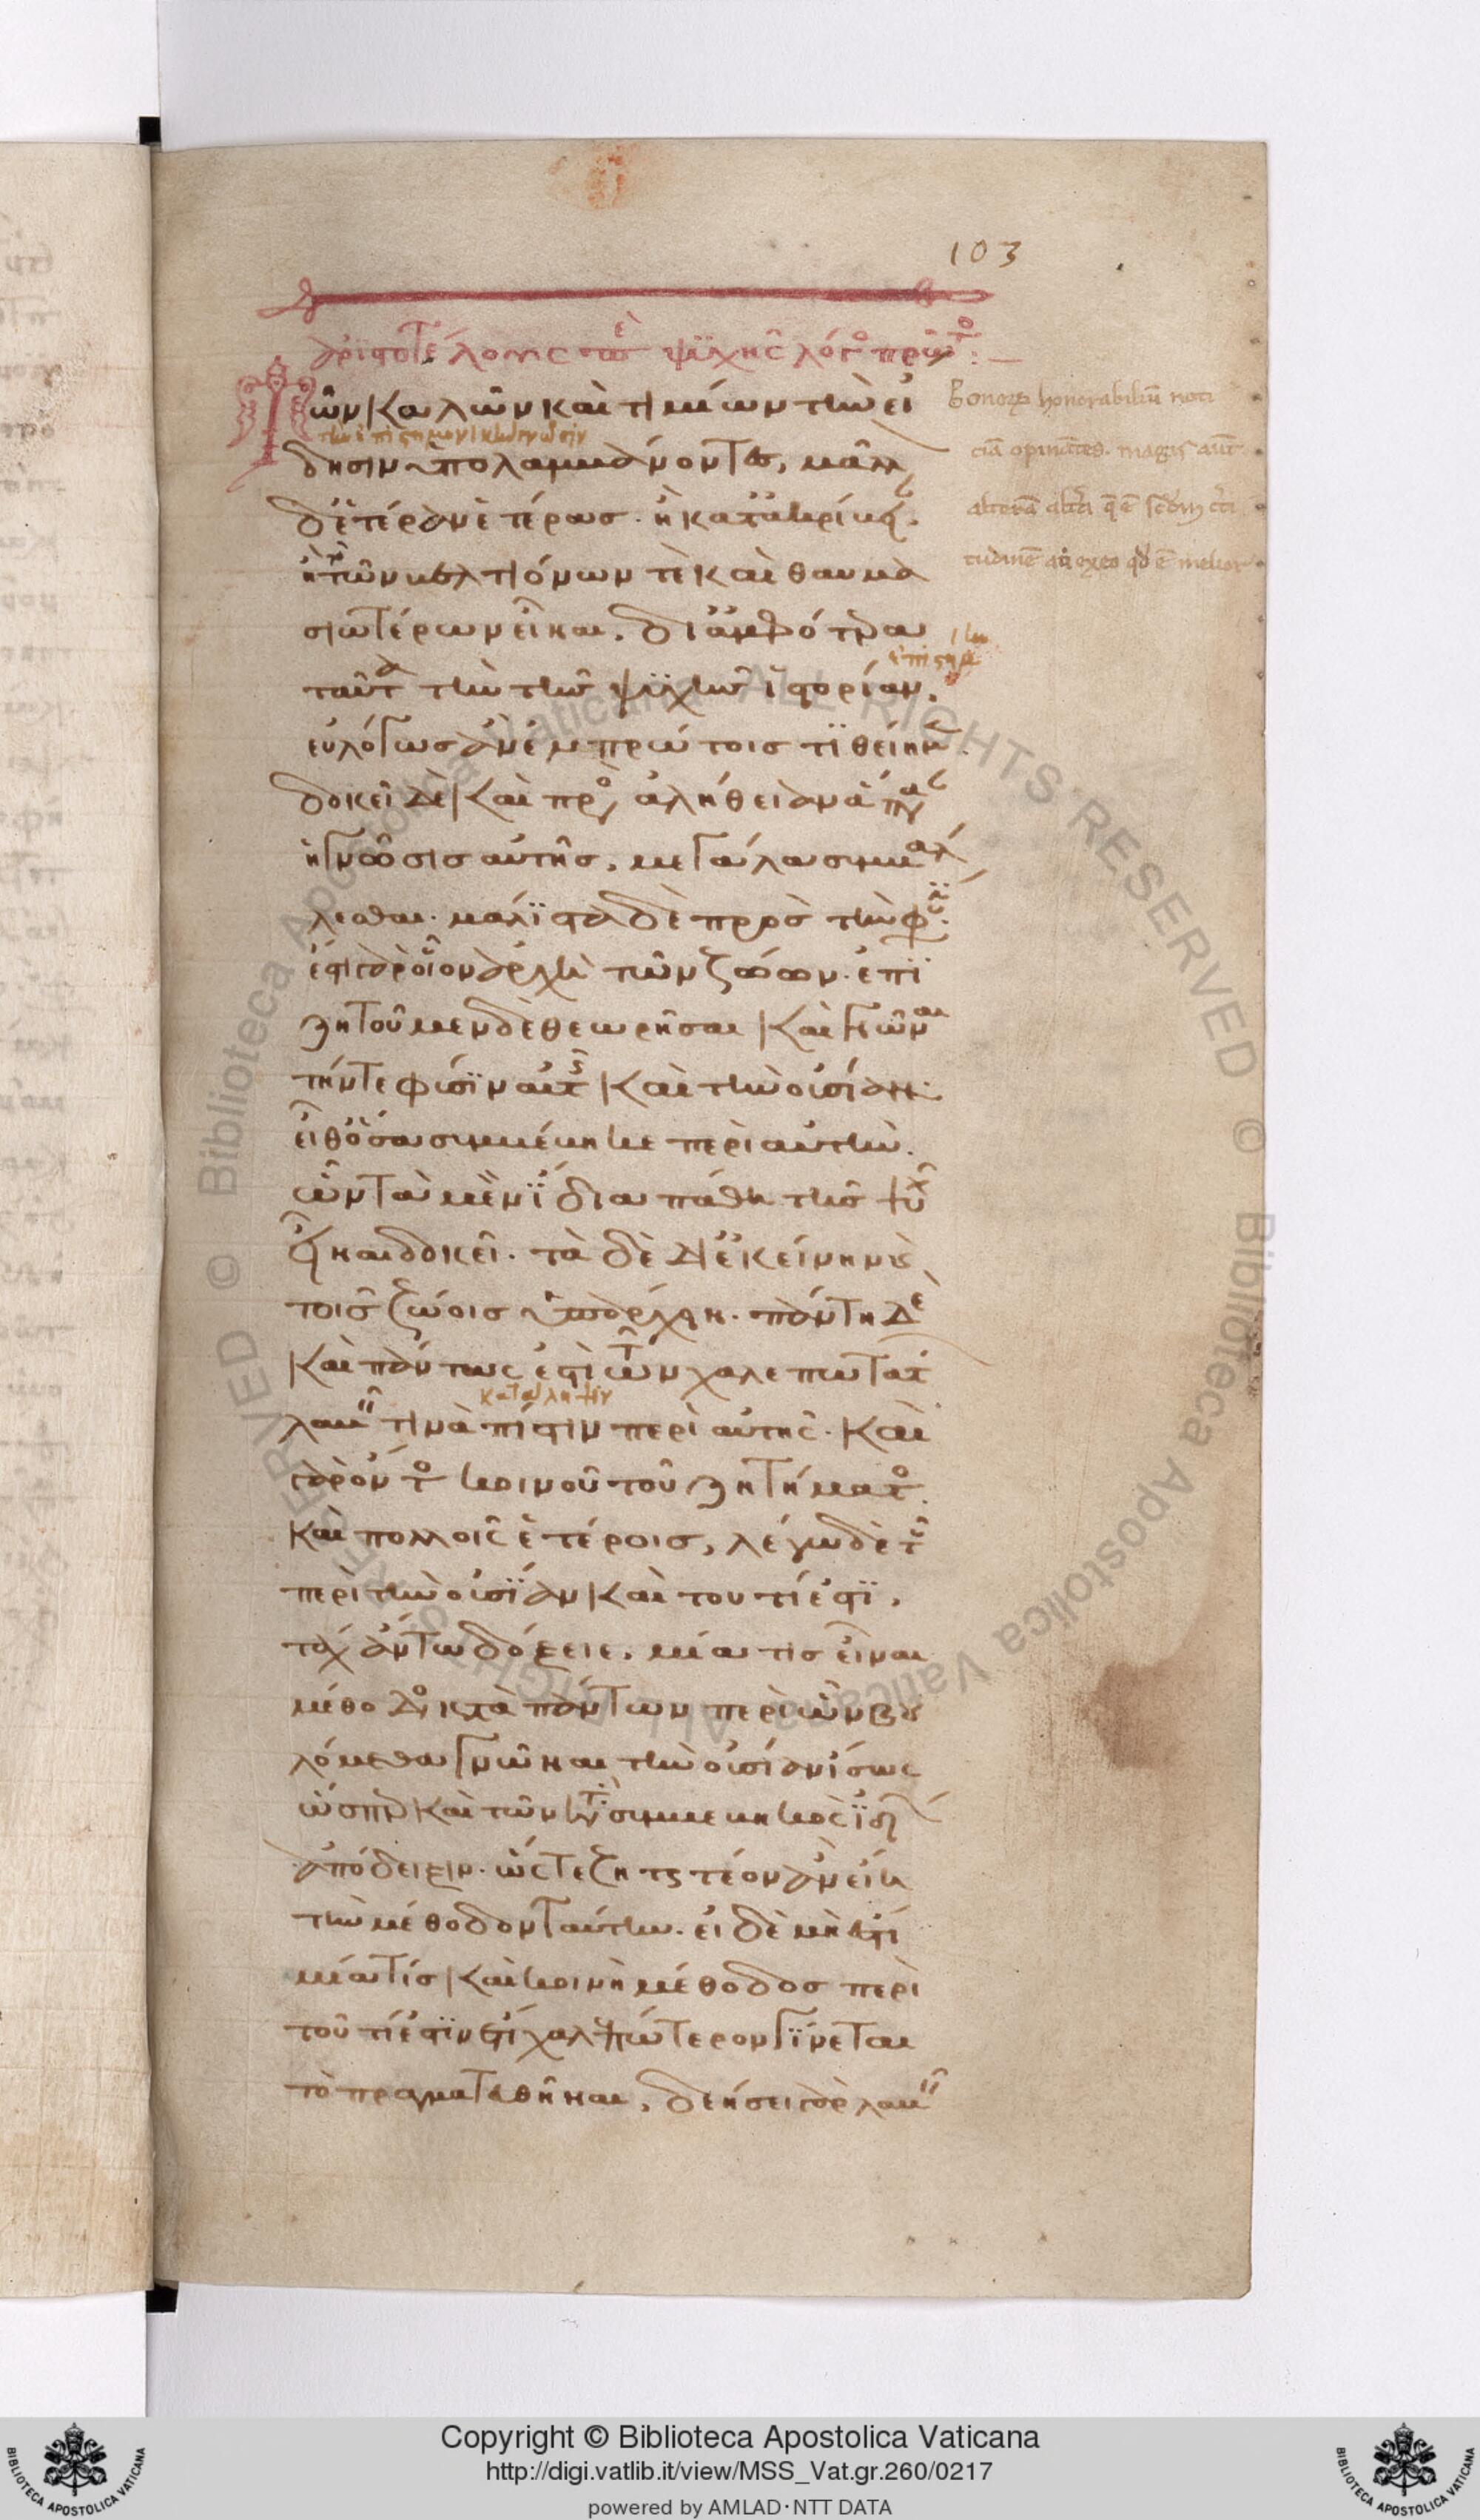 103
ἀριστοτέλους περὶ ψυχῆς λόγος πρῶτος:
Τῶν καλῶν καὶ τιμίων τὴν εἴ
δησιν ὑπολαμβάνοντες, μᾶλλον
δ' ἑτέραν ἑτέρας. ἢ κατ' ἀκρίβειαν.
ἢ τῷ βελτιόνων τε καὶ θαυμα
σιωτέρων εἶναι. δι' ἀμφότερα
ταῦτα τὴν τῆς ψυχῆς ἱστορίαν.
εὐλόγως ἂν ἐν πρώτοις τιθείημεν.
δοκεῖ δὲ καὶ πρὸς ἀλήθειαν ἅπασαν
ἡ γνῶσις αὐτῆς. μεγάλα συμβάλ
λεσθαι. μάλιστα δὲ πρὸς τὴν φύσιν.
ἔστι γὰρ οἷον ἀρχὴ τῶν ζώων. ἐπι
ζητοῦμεν δὲ θεωρῆσαι καὶ γνῶναι
τήν τε φύσιν αὐτῆς καὶ τὴν οὐσίαν.
εἶθ' ὅσα συμβέβηκε περὶ αὐτήν.
ὧν τὰ μὲν ἴδια πάθη τῆς ψυχῆς
εἶναι δοκεῖ. τὰ δὲ δι' ἐκείνην καὶ
τοῖς ζώοις ὑπάρχειν. πάντῃ δὲ
καὶ πάντως ἐστὶ τῶν χαλεπωτάτων
λαβεῖν τινὰ πίστιν περὶ αὐτῆς. καὶ
γὰρ ὄντος κοινοῦ τοῦ ζητήματος.
καὶ πολλοῖς ἑτέροις, λέγω δὲ τοῦ
περὶ τὴν οὐσίαν καὶ του τί ἐστι.
τάχ' ἄν τω δόξειε. μία τις εἶναι
μέθοδος κατὰ πάντων περὶ ὧν βου
λόμεθα γνῶναι τὴν οὐσίαν ἴσως
ὥσπερ καὶ τῶν κατὰ συμβεβηκὸς ἰδίων
ἀπόδειξιν. ὥστε ζητητέον ἂν εἴη
τὴν μέθοδον ταύτην. εἰ δὲ μή ἐστι
μία τίς καὶ κοινὴ μέθοδος περὶ
τοῦ τί ἐστιν ἔτι χαλεπώτερον γίνεται
τὸ πραγματευθῆναι. δεήσει γὰρ λαβεῖν
τὴν ἐπιστημονικὴν γνῶσιν
κατάληψιν
Bonorum honorabilium noti
ciam opinantes. magis autem
alteram altera
tudinem aut ex eo quod est melior
Copyright © Biblioteca Apostolica Vaticana
http://digi.vatlib.it/view/MSS_Vat.gr.260/0217
powered by AMLAD·NTT DATA
BIBLIOTECA APOSTOLICA VATICANA
BIBLIOTECA APOSTOLICA VATICANA
© Biblioteca Apostolica Vaticana ALL RIGHTS RESERVED
© Biblioteca Apostolica Vaticana ALL RIGHTS RESERVED